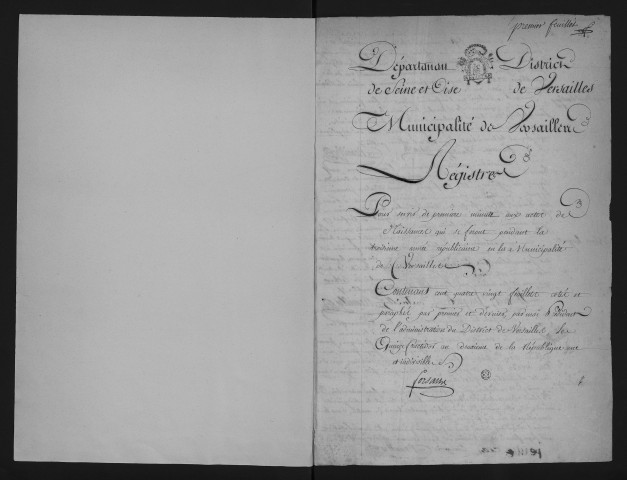 premier feuillet
Département District
de Seine et Oise de Versailles
Municipalité de Versailles
Régistre
Pour servir de premiere minute aux actes de
Naissance qui se feront pendant la
troisieme année républicaine en la Municipalité
de Versailles
Contenant cent quatre vingt feuillets coté et
paraphé par premier et dernier par moi Président
de l'administration du District de Versailles le
Quinze fructidor an deuxieme de la République une
et indivisible